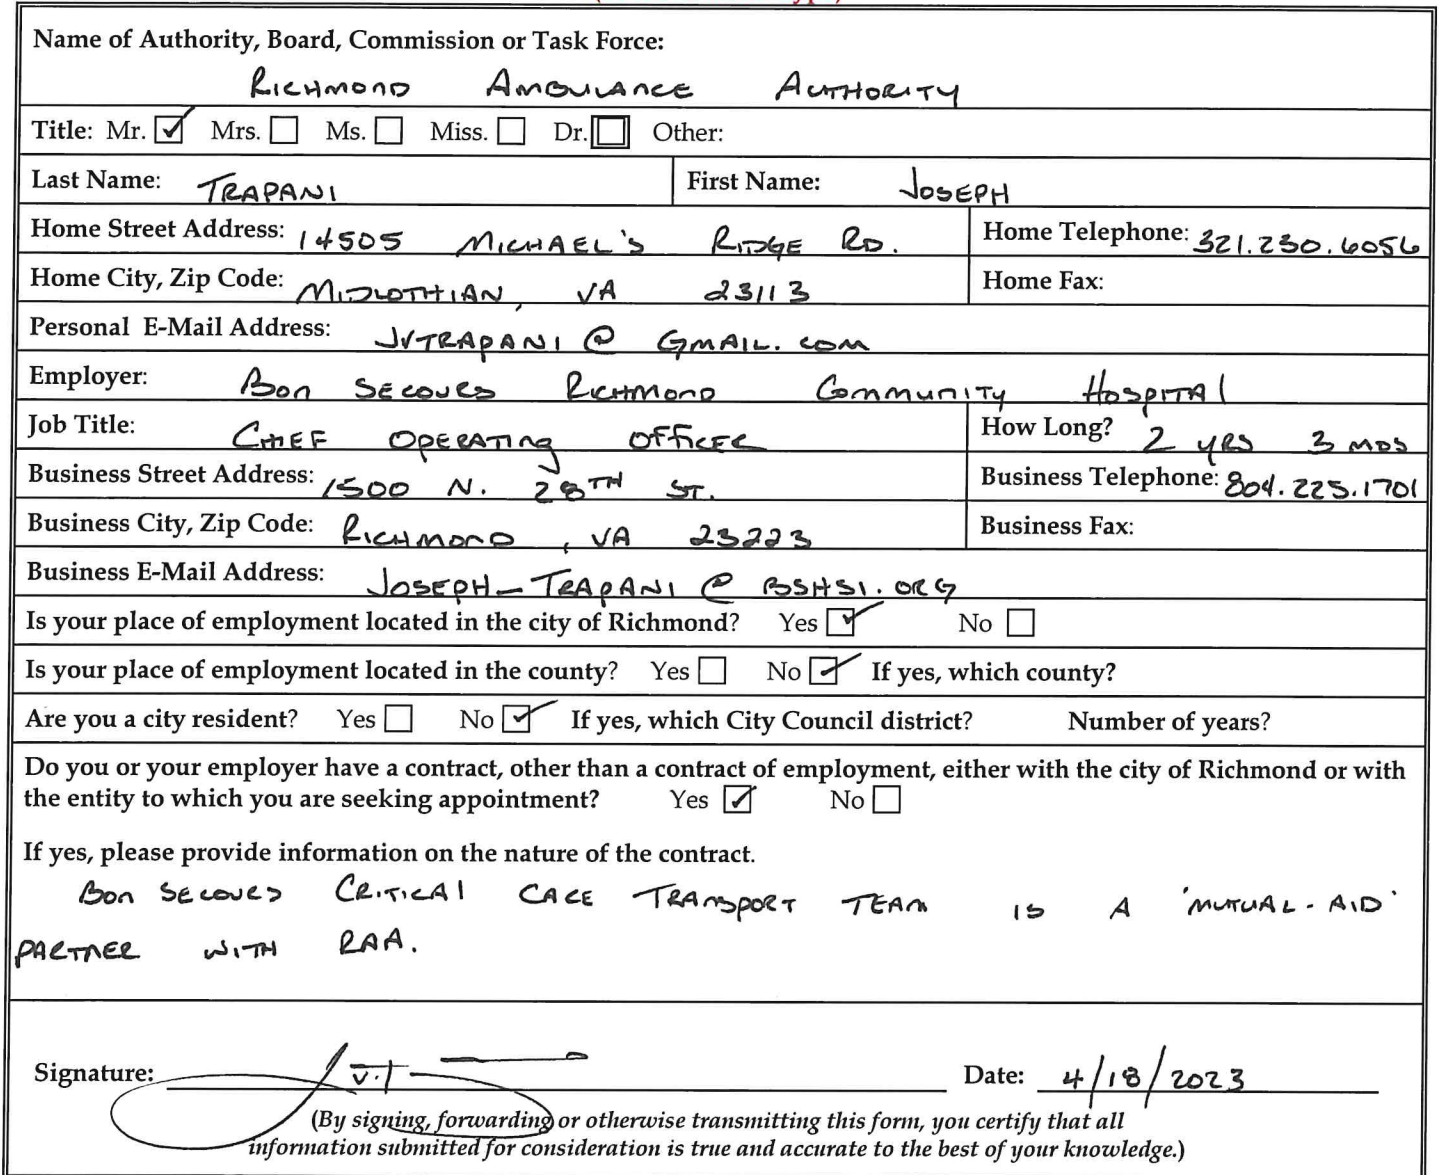 Name of Authority, Board, Commission or Task Force:
RICHMOND AMBULANCE AUTHORITY
Title: Mr. ☑ Mrs. ☐ Ms. ☐ Miss. ☐ Dr. ☐ Other:
Last Name: TRAPANI First Name: JOSEPH
Home Street Address: 14505 MICHAEL'S RIDGE RD. Home Telephone: 321.230.6056
Home City, Zip Code: MIDLOTHIAN, VA 23113 Home Fax:
Personal E-Mail Address: JVTRAPANI@GMAIL.COM
Employer: BON SECOURS RICHMOND COMMUNITY HOSPITAL
Job Title: CHIEF OPERATING OFFICER How Long? 2 YRS 3 MOS
Business Street Address: 1500 N. 28TH ST. Business Telephone: 804.225.1701
Business City, Zip Code: RICHMOND, VA 23223 Business Fax:
Business E-Mail Address: JOSEPH_TRAPANI@BSHSI.ORG
Is your place of employment located in the city of Richmond? Yes ☑ No ☐
Is your place of employment located in the county? Yes ☐ No ☑ If yes, which county?
Are you a city resident? Yes ☐ No ☑ If yes, which City Council district? Number of years?
Do you or your employer have a contract, other than a contract of employment, either with the city of Richmond or with
the entity to which you are seeking appointment? Yes ☑ No ☐
If yes, please provide information on the nature of the contract.
BON SECOURS CRITICAL CARE TRANSPORT TEAM IS A 'MUTUAL-AID'
PARTNER WITH RAA.
Signature: Date: 4/18/2023
(By signing, forwarding or otherwise transmitting this form, you certify that all
information submitted for consideration is true and accurate to the best of your knowledge.)